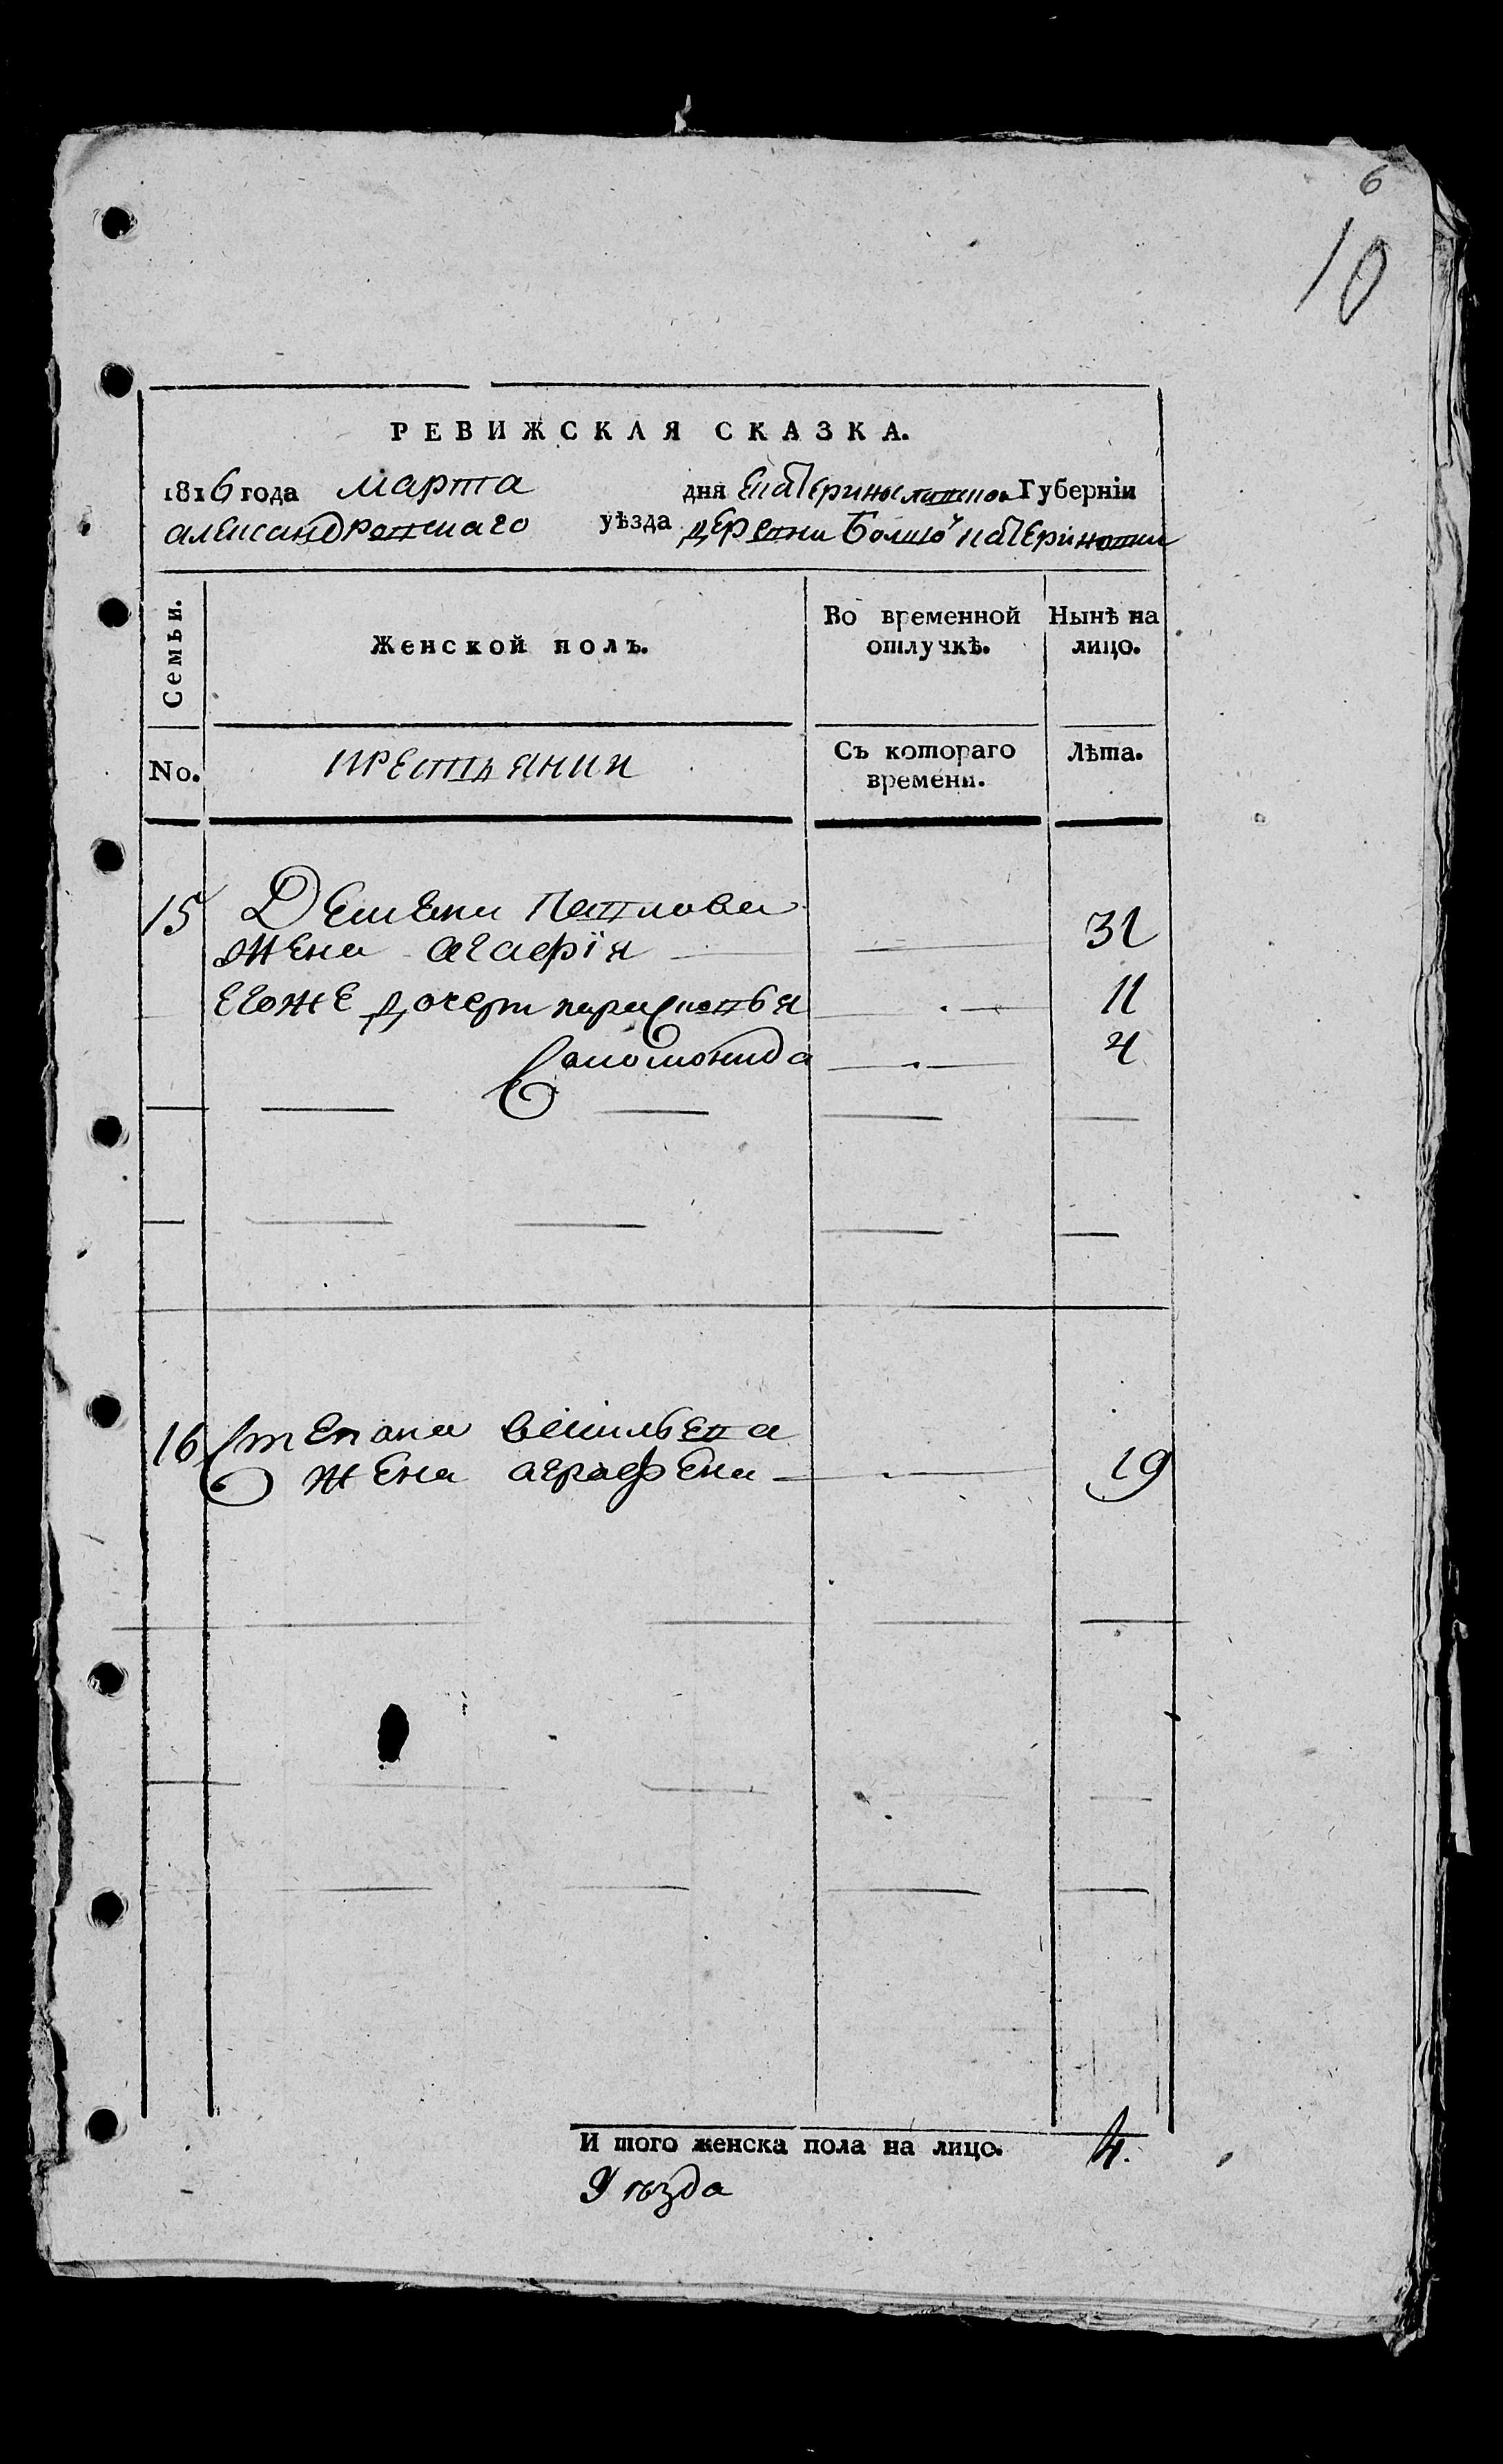 6
10
РЕВИЖСКАЯ СКАЗКА.
1816 года марта дня Екатеринославской Губернiи
александровскаго уѣзда деревни Болшой катериновки
Семьи. Женской полъ. Во временной отлучкѣ. Нынѣ на лицо.
No. крестьянки Съ котораго времени. Лѣта.
15 Демяна Павлова
жена агафiя 31
егоже дочери парасковья 11
Соломонида 4
16 Степана васильева
жена аграфена 19
И того женска пола на лицо. 4.
Уѣзда